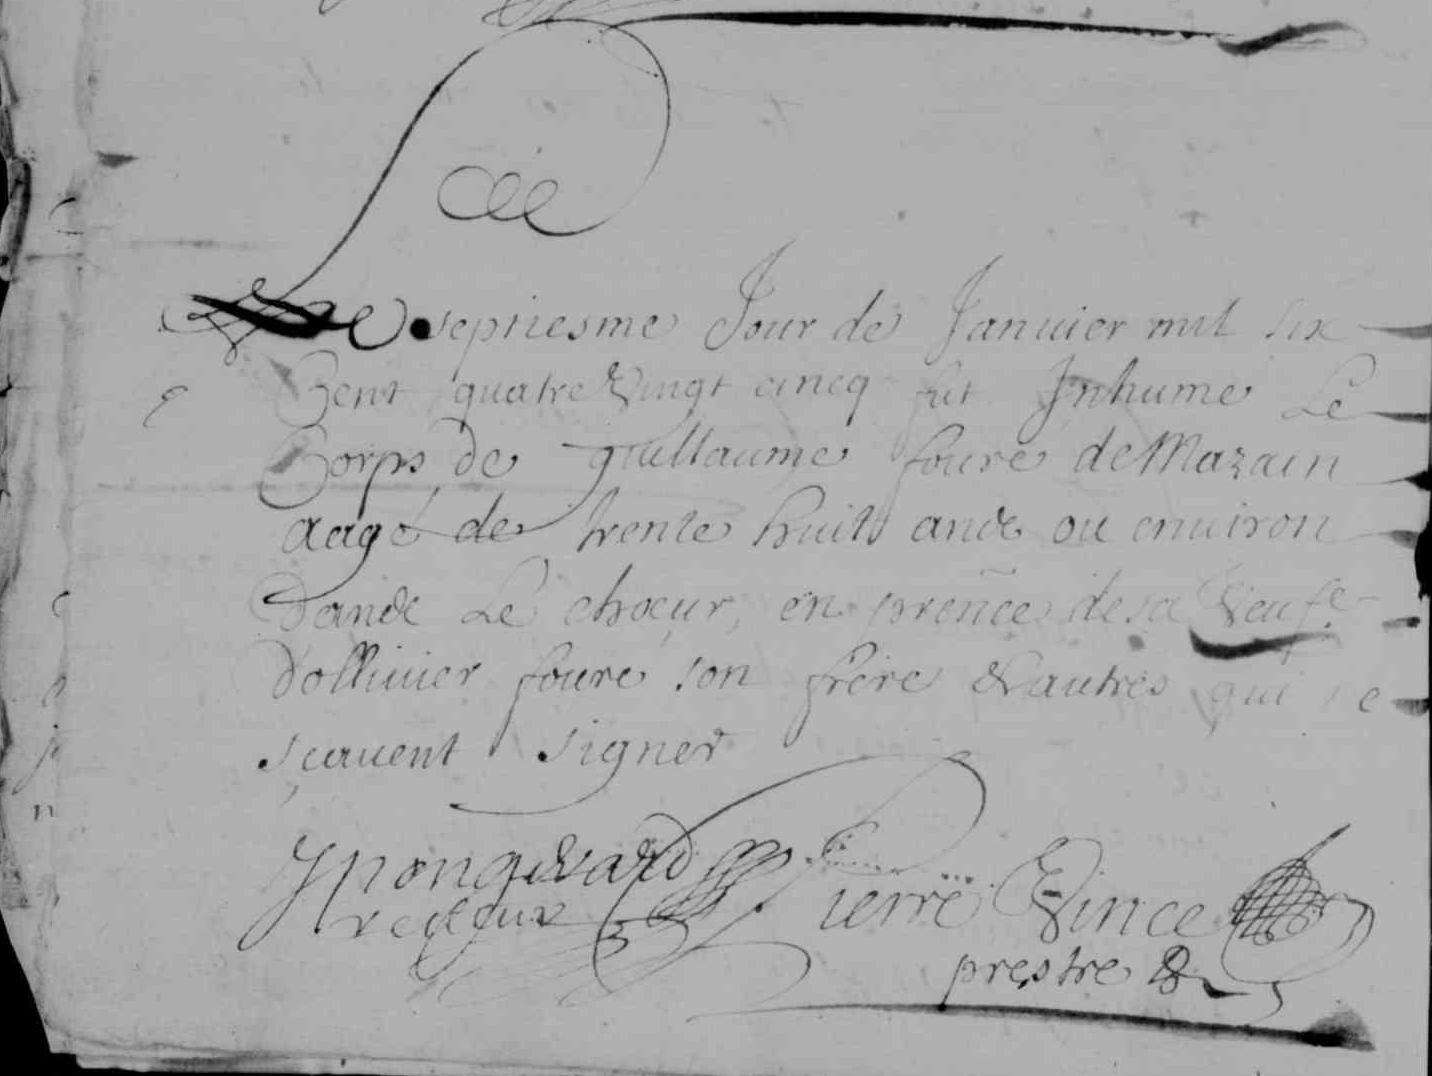 Le septiesme Jour de Januier mil six
Cent quatre Vingt cincq fut Inhume Le
Corps de guillaume foure de Mazain
aagé de trente huit ans ou enuiron
dans Le chœur, en preñce de sa Veufe
d'ollivier foure son frere & autres qui ne
sçauent signer
recteur Pierre Vince
prestre &